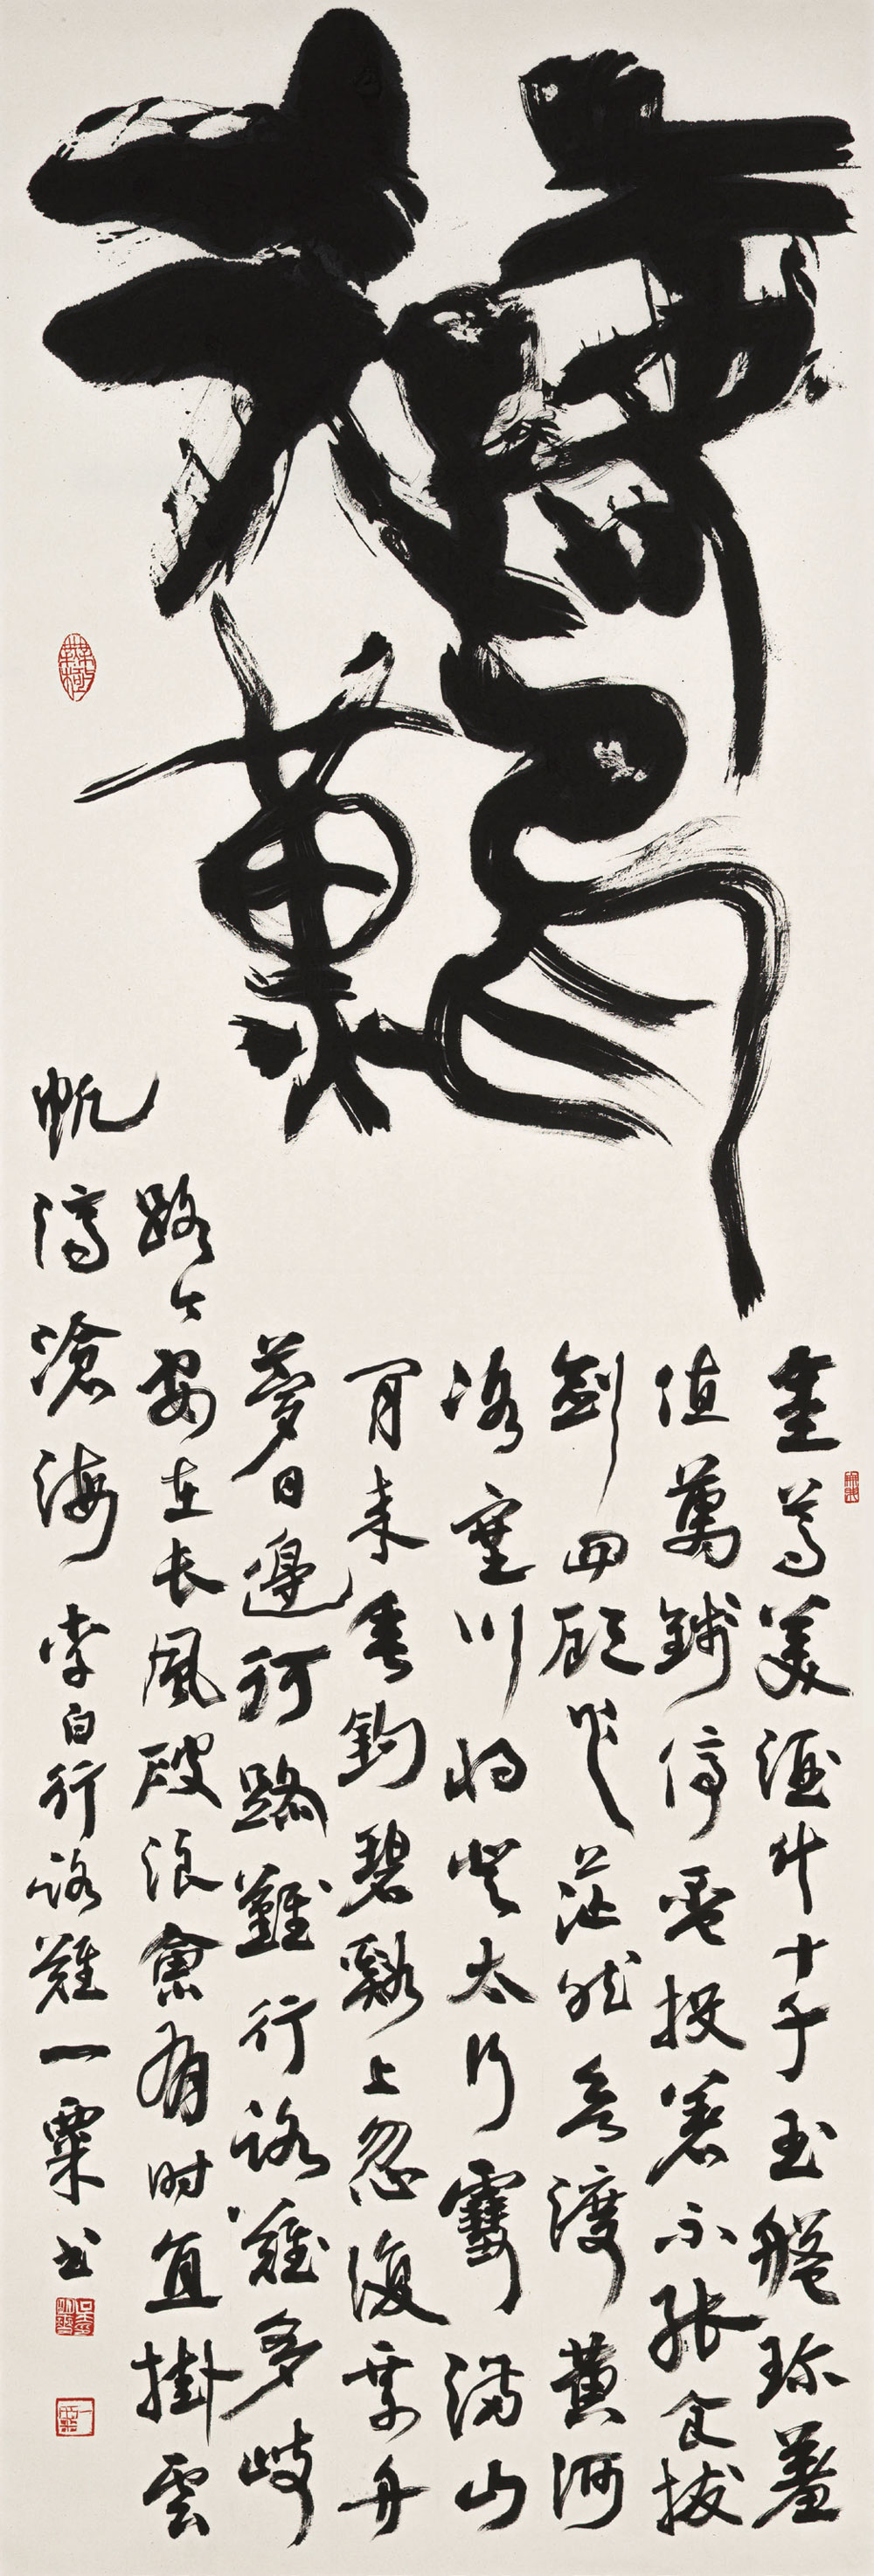 金尊美酒斗十千玉盤珍羞
值萬錢停杯投箸不能食拔
劍四顧心茫然欲渡黃河
冰塞川將登太行雪滿山
閒來垂釣碧谿上忽復乘舟
夢日邊行路難行路難多歧
路今安在长風破浪會有時直掛雲
帆濟滄海 李白行路難一粟书